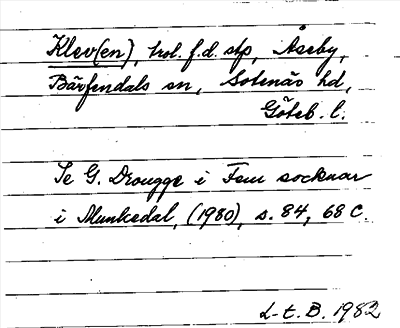 Klev(en), trol. f.d. stp, Åseby,
Bärfendals sn, Sotenäs hd,
Göteb. l.
Se G. Drougge i Fem socknar
i Munkedal, (1980), s. 84, 68 C.
L-t. B. 1982